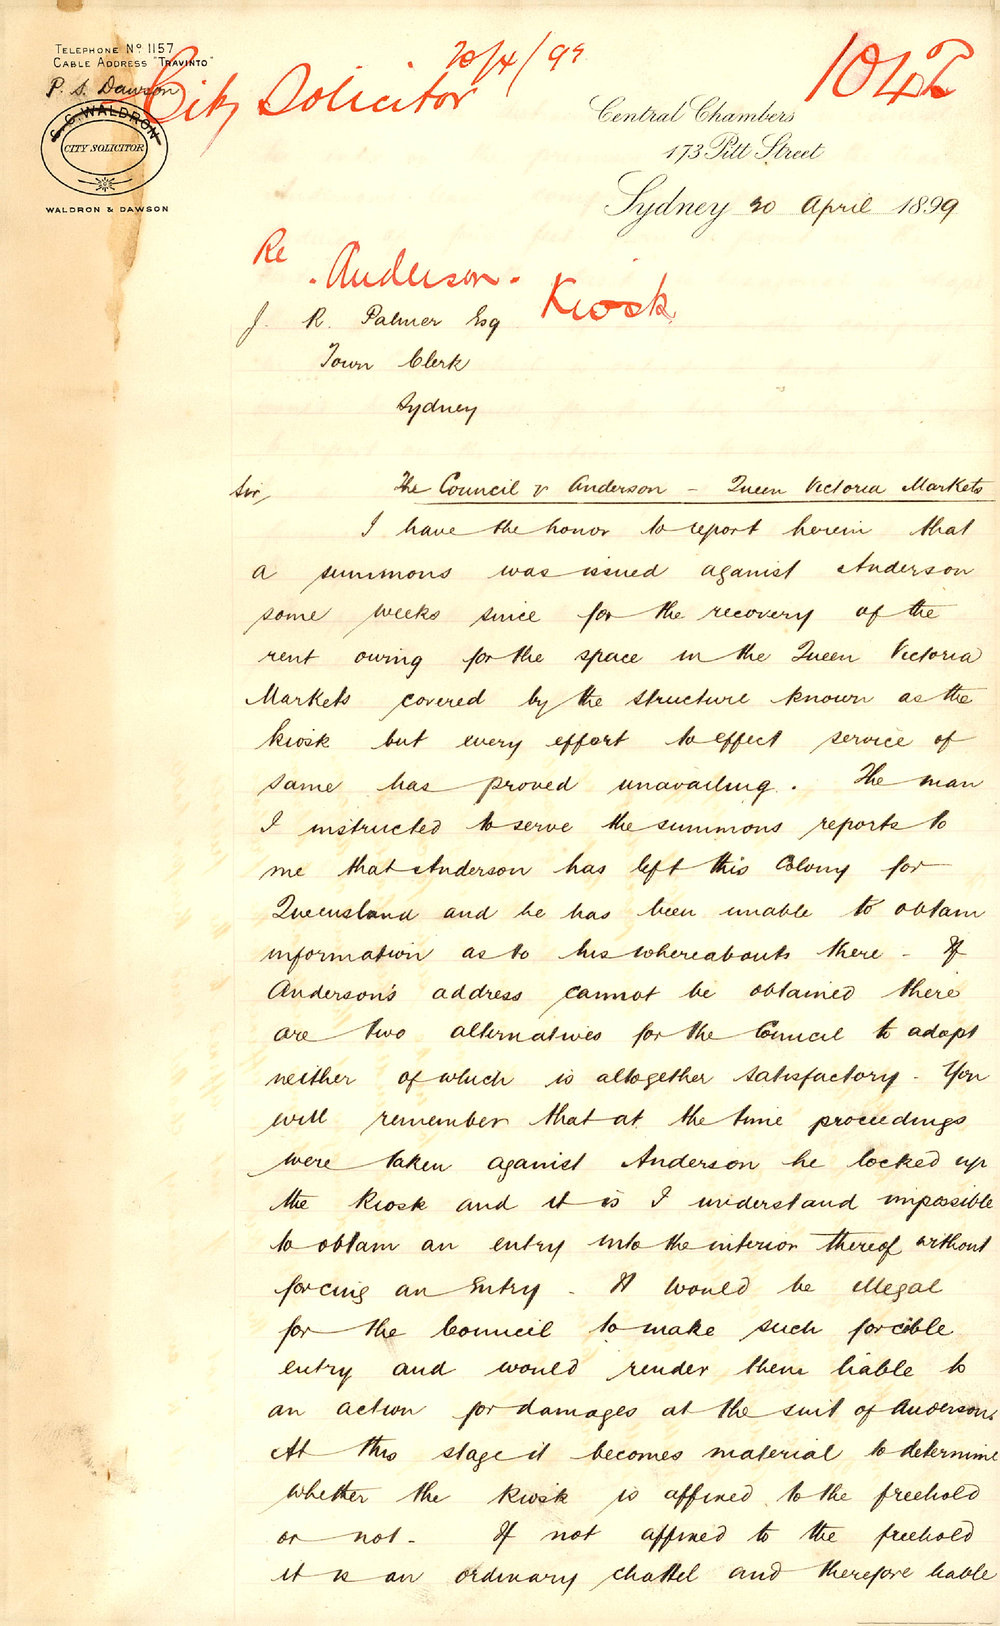 Telephone No 1157
Cable Address "Travinto"
P. S. Dawson
S. C. WALDRON
CITY SOLICITOR
WALDRON & DAWSON
City Solicitor
20/4/99
1042
Central Chambers
173 Pitt Street
Sydney 20 April 1899
Re
. Anderson . Kiosk
J. R. Palmer Esq
Town Clerk
Sydney
Sir, The Council v Anderson - Queen Victoria Markets
I have the honor to report herein that
a summons was issued against Anderson
some weeks since for the recovery of the
rent owing for the space in the Queen Victoria
Markets covered by the structure known as the
kiosk but every effort to effect service of
same has proved unavailing. The man
I instructed to serve the summons reports to
me that Anderson has left this Colony for
Queensland and he has been unable to obtain
information as to his whereabouts there - If
Anderson's address cannot be obtained there
are two alternatives for the Council to adopt
neither of which is altogether satisfactory - You
will remember that at the time proceedings
were taken against Anderson he locked up
the Kiosk and it is I understand impossible
to obtain an entry into the interior thereof without
forcing an Entry - It would be illegal
for the Council to make such forcible
entry and would render them liable to
an action for damages at the suit of Anderson.
At this stage it becomes material to determine
whether the Kiosk is affixed to the freehold
or not - If not affixed to the freehold
it is an ordinary chattel and therefore liable